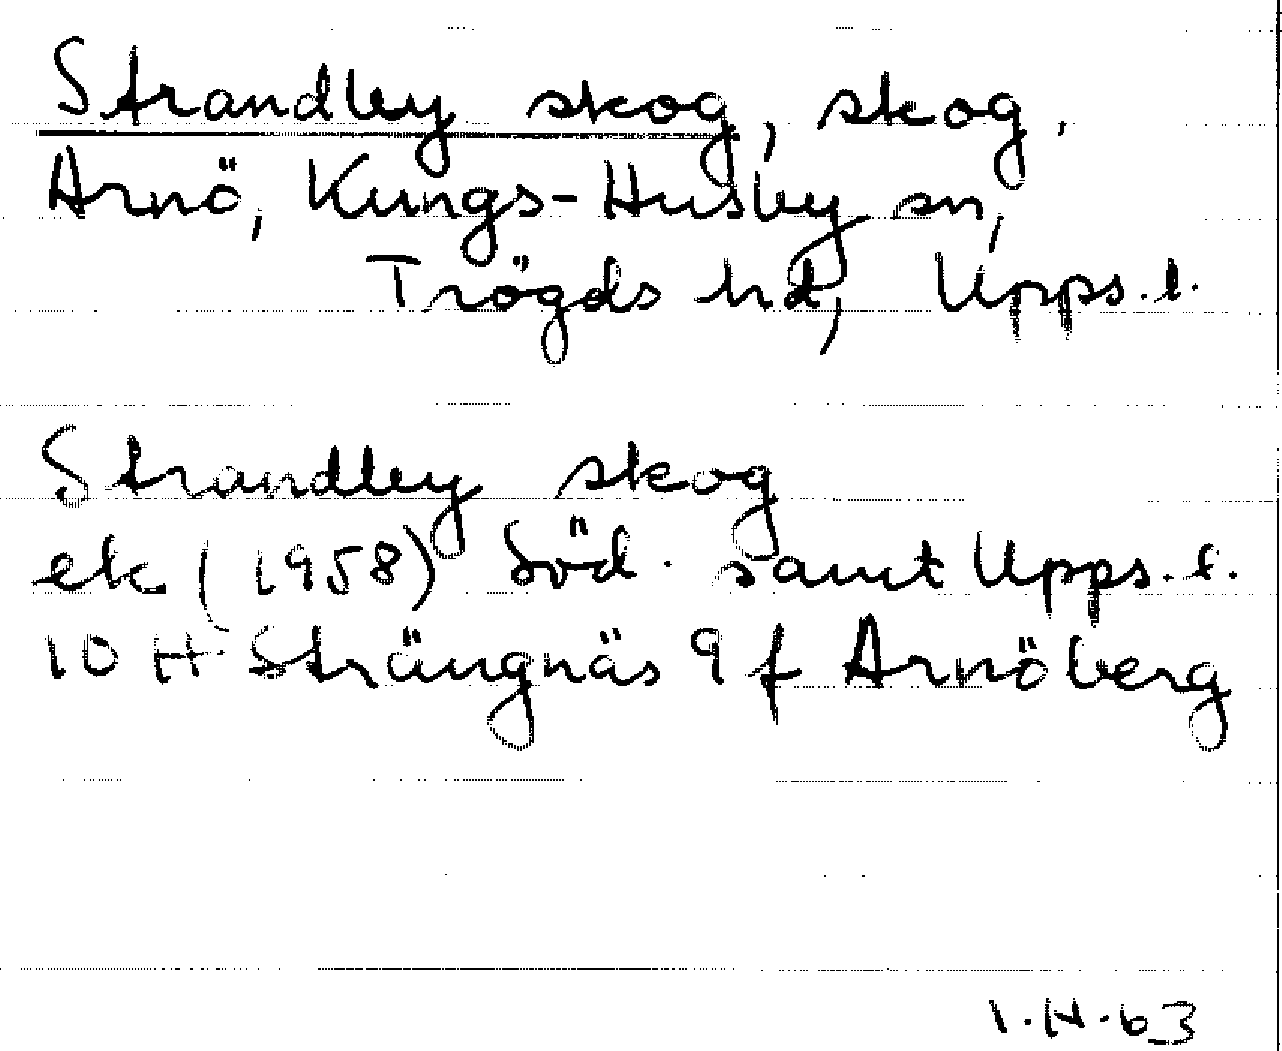 Strandby skog, skog,
Arnö, Kungs-Husby sn,
Trögds hd, Upps. l.
Strandby skog
ek (1958) Söd. samt Upps. l.
10 H Strängnäs 9 f Arnöberg
I.H.63